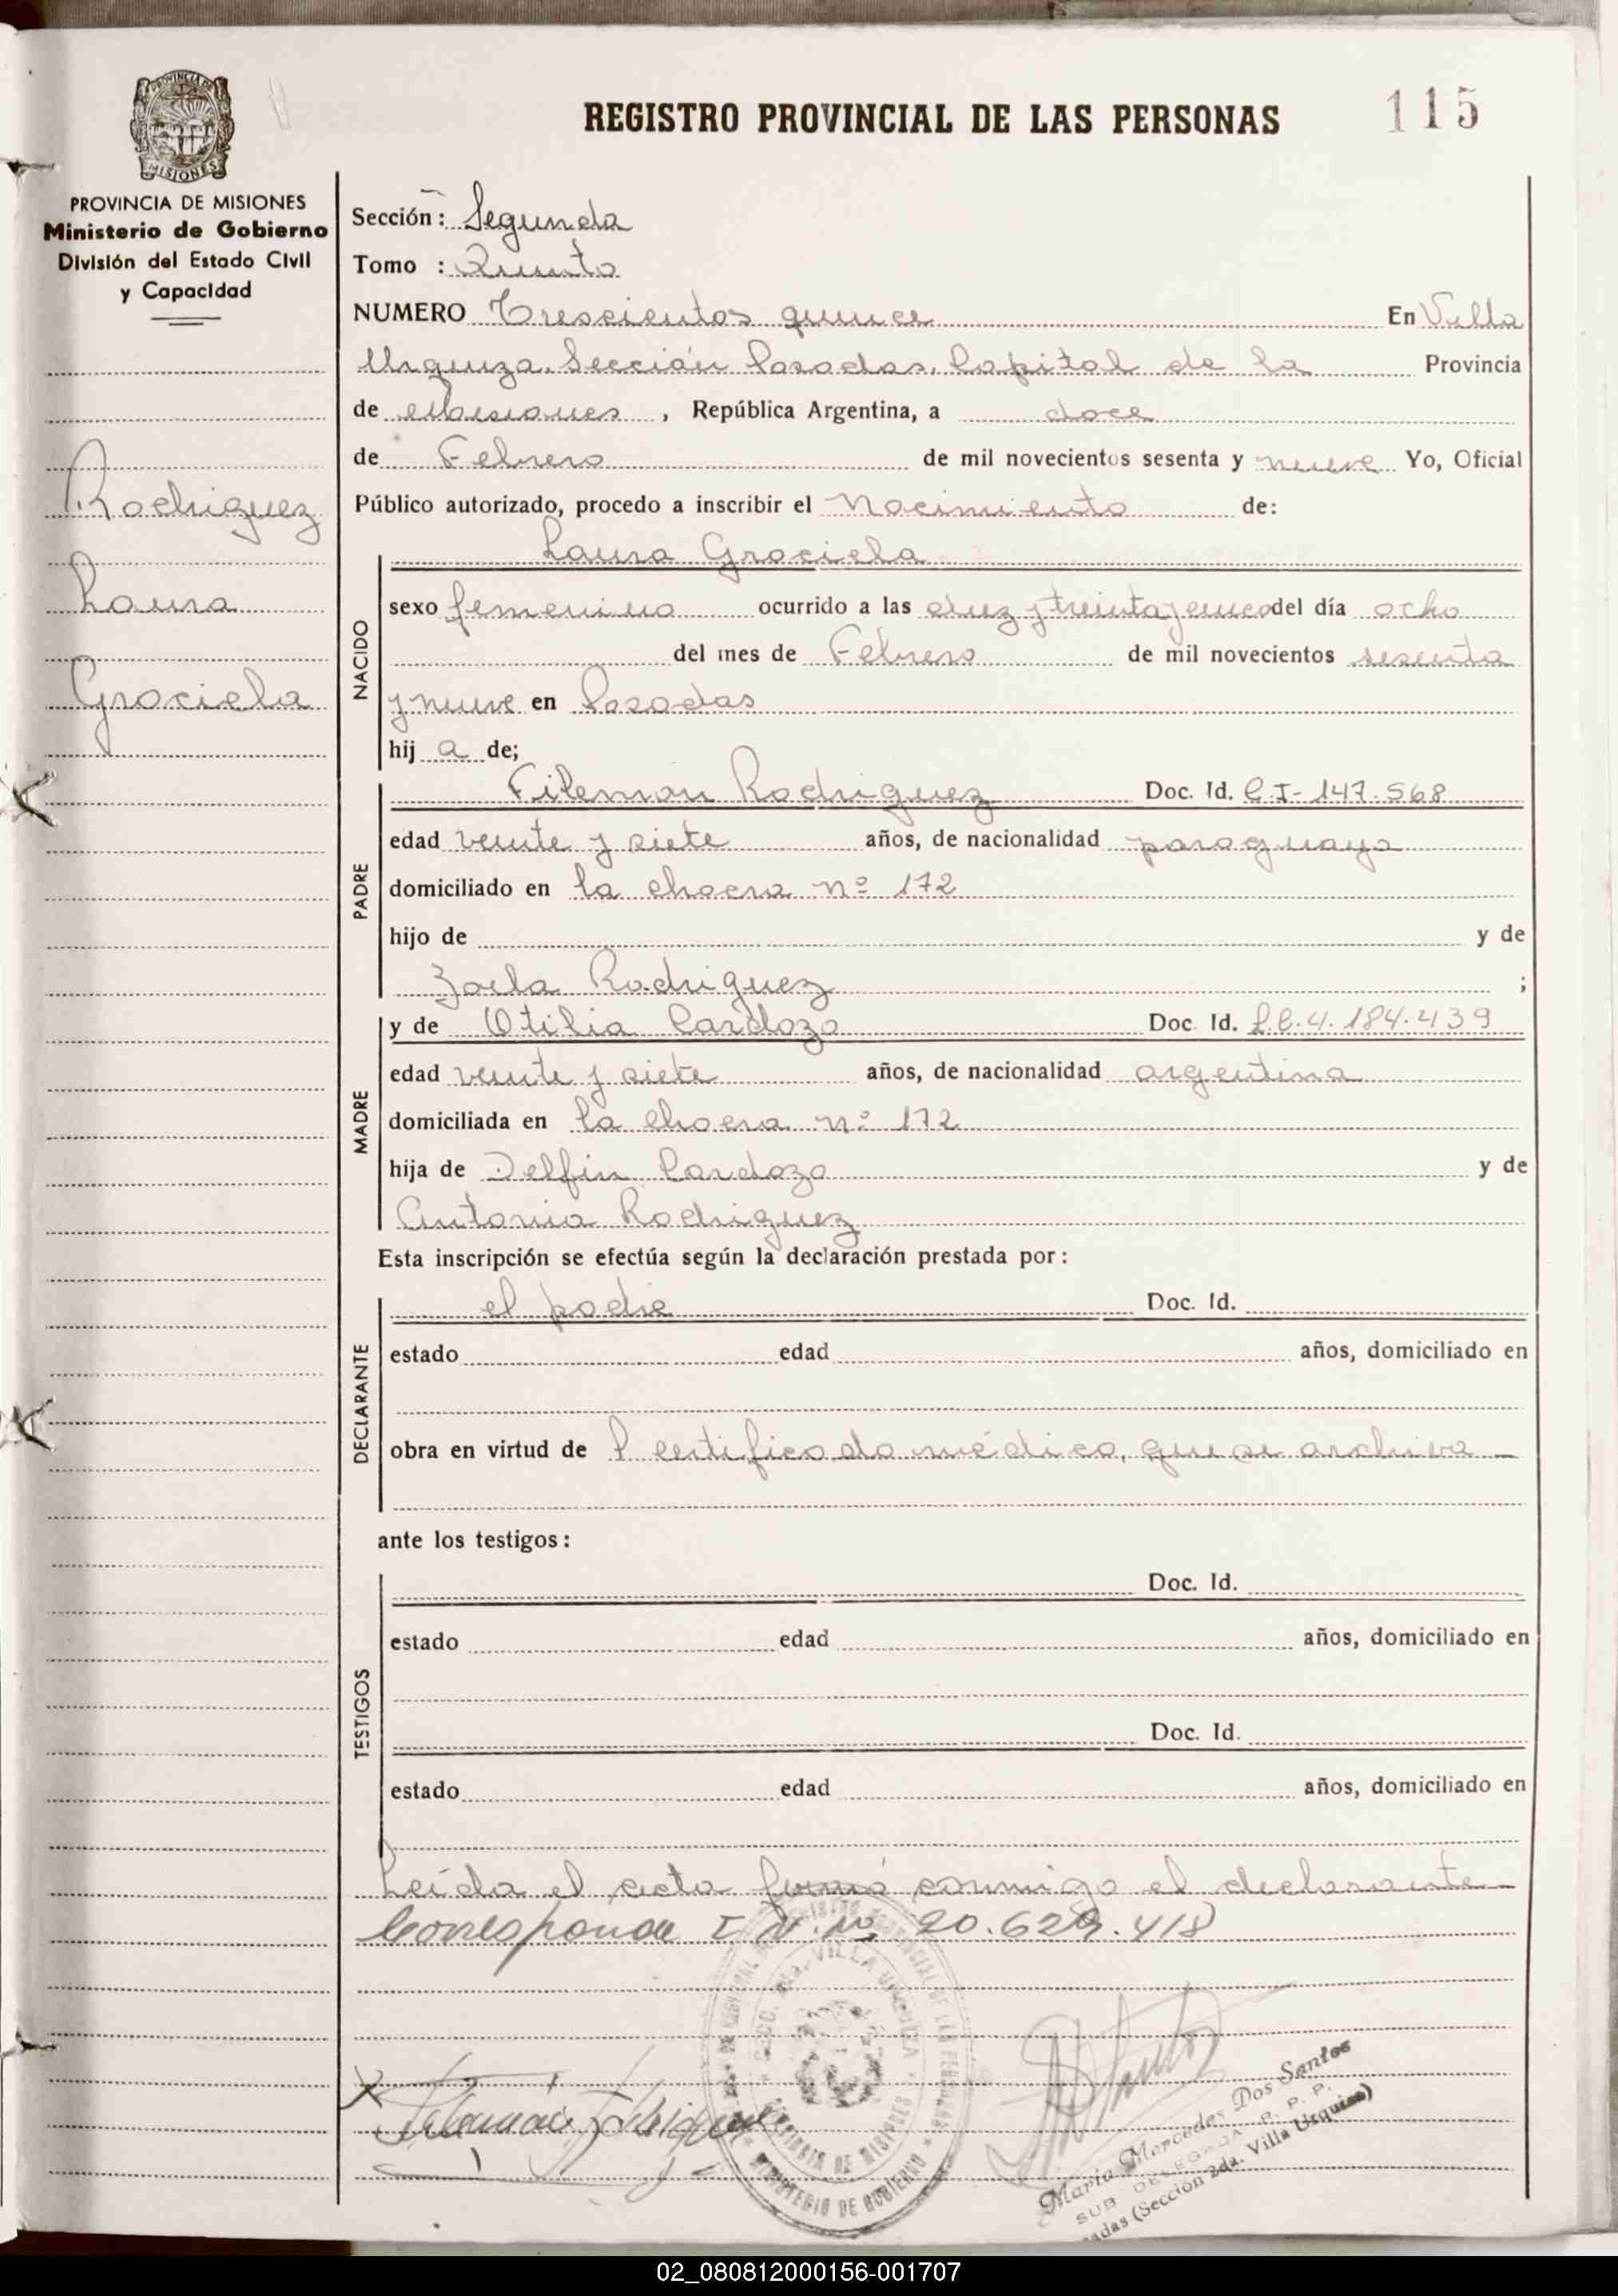 REGISTRO PROVINCIAL DE LAS PERSONAS
115
PROVINCIA DE MISIONES
Ministerio de Gobierno
División del Estado Civil
y Capacidad
Rodriguez
Laura
Graciela
Sección: Segunda
Tomo : Quinto
NUMERO Trescientos quince En Villa
Urquiza, Sección Posadas, Capital de la Provincia
de Misiones, República Argentina, a doce
de Febrero de mil novecientos sesenta y nueve Yo, Oficial
Público autorizado, procedo a inscribir el Nacimiento de:
NACIDO
Laura Graciela
sexo femenino ocurrido a las diez y treinta y cinco del día ocho
del mes de Febrero de mil novecientos sesenta
y nueve en Posadas
hij a de;
PADRE
Filemón Rodriguez Doc. Id. C.I-147.568
edad veinte y siete años, de nacionalidad paraguaya
domiciliado en la chacra nº 172
hijo de y de
Zoila Rodriguez ;
MADRE
y de Otilia Cardozo Doc. Id. L.C.4.184.439
edad veinte y siete años, de nacionalidad argentina
domiciliada en la chacra nº 172
hija de Delfin Cardozo y de
Antonia Rodriguez
Esta inscripción se efectúa según la declaración prestada por:
DECLARANTE
el padre Doc. Id.
estado edad años, domiciliado en
obra en virtud de l certificado médico, que se archiva -
ante los testigos:
TESTIGOS
Doc. Id.
estado edad años, domiciliado en
Doc. Id.
estado edad años, domiciliado en
Leída el acta firmó conmigo el declarante -
Corresponde I.D. Nº 20.629.418
VILLA URQUIZA
PROVINCIA DE MISIONES
MINISTERIO DE GOBIERNO
Filemón Rodriguez
María Mercedes Dos Santos
SUB DELEGADA R. P. P.
(Sección 2da. Villa Urquiza)
02_080812000156-001707